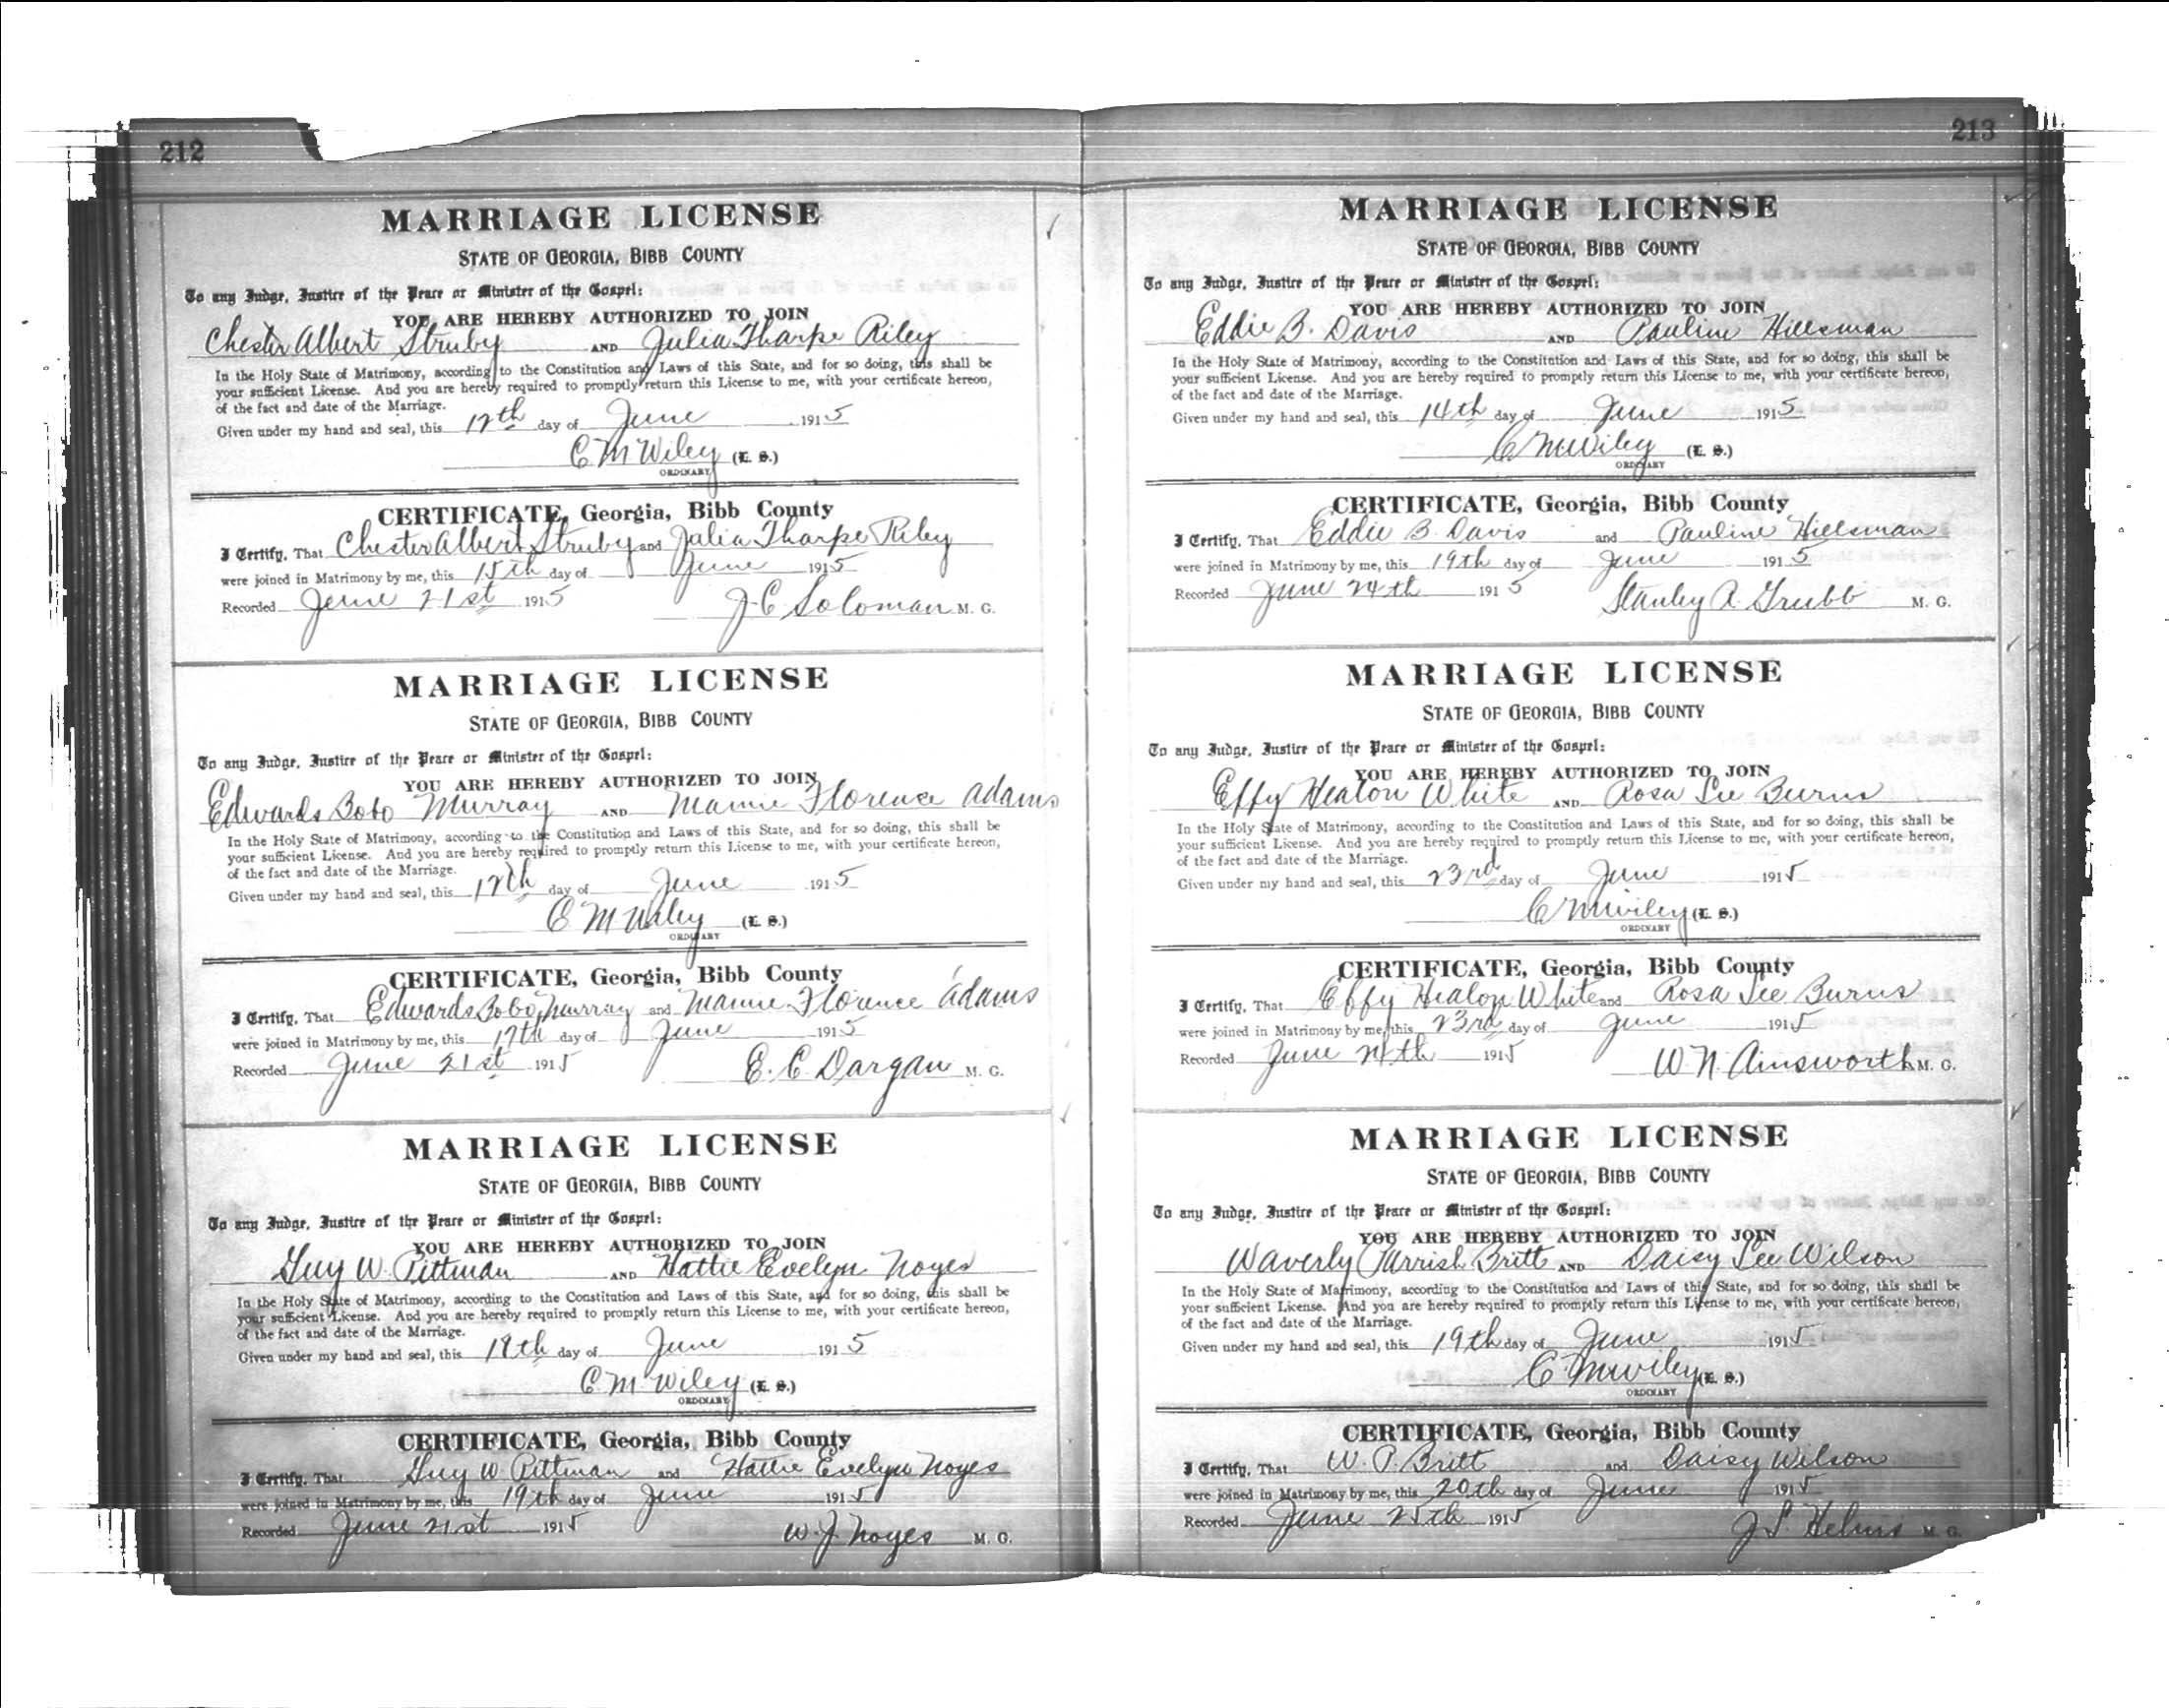 212
MARRIAGE LICENSE
STATE OF GEORGIA, BIBB COUNTY
To any Judge, Justice of the Peace or Minister of the Gospel:
YOU ARE HEREBY AUTHORIZED TO JOIN
Chester Albert Struby AND Julia Tharpe Riley
In the Holy State of Matrimony, according to the Constitution and Laws of this State, and for so doing, this shall be
your sufficient License. And you are hereby required to promptly return this License to me, with your certificate hereon,
of the fact and date of the Marriage.
Given under my hand and seal, this 12th day of June 1915
C M Wiley (L. S.)
ORDINARY
CERTIFICATE, Georgia, Bibb County
I Certify, That Chester Albert Struby and Julia Tharpe Riley
were joined in Matrimony by me, this 15th day of June 1915
Recorded June 21st 1915 J C Soloman M. G.
MARRIAGE LICENSE
STATE OF GEORGIA, BIBB COUNTY
To any Judge, Justice of the Peace or Minister of the Gospel:
YOU ARE HEREBY AUTHORIZED TO JOIN
Edwards Bobo Murray AND Mamie Florence Adams
In the Holy State of Matrimony, according to the Constitution and Laws of this State, and for so doing, this shall be
your sufficient License. And you are hereby required to promptly return this License to me, with your certificate hereon,
of the fact and date of the Marriage.
Given under my hand and seal, this day of June 1915
C M Wiley (L. S.)
ORDINARY
CERTIFICATE, Georgia, Bibb County
I Certify, That Edwards Bobo Murray and Mamie Florence Adams
were joined in Matrimony by me, this 17th day of June 1915
Recorded June 21st 1915 E. C. Dargan M. G.
MARRIAGE LICENSE
STATE OF GEORGIA, BIBB COUNTY
To any Judge, Justice of the Peace or Minister of the Gospel:
YOU ARE HEREBY AUTHORIZED TO JOIN
Guy W. Pittman AND Hattie Evelyn Noyes
In the Holy State of Matrimony, according to the Constitution and Laws of this State, and for so doing, this shall be
your sufficient License. And you are hereby required to promptly return this License to me, with your certificate hereon,
of the fact and date of the Marriage.
Given under my hand and seal, this 18th day of June 1915
C. M. Wiley (L. S.)
ORDINARY
CERTIFICATE, Georgia, Bibb County
I Certify, That Guy W Pittman and Hattie Evelyn Noyes
were joined in Matrimony by me, this 19th day of June 1915
Recorded June 21st 1915 W. J. Noyes M. G.
213
MARRIAGE LICENSE
STATE OF GEORGIA, BIBB COUNTY
To any Judge, Justice of the Peace or Minister of the Gospel:
YOU ARE HEREBY AUTHORIZED TO JOIN
Eddie B. Davis AND Pauline Hillsman
In the Holy State of Matrimony, according to the Constitution and Laws of this State, and for so doing, this shall be
your sufficient License. And you are hereby required to promptly return this License to me, with your certificate hereon,
of the fact and date of the Marriage.
Given under my hand and seal, this 14th day of June 1915
C M Wiley (L. S.)
ORDINARY
CERTIFICATE, Georgia, Bibb County
I Certify, That Eddie B. Davis and Pauline Hillsman
were joined in Matrimony by me, this 19th day of June 1915
Recorded June 24th 1915 Stanley R. Grubb M. G.
MARRIAGE LICENSE
STATE OF GEORGIA, BIBB COUNTY
To any Judge, Justice of the Peace or Minister of the Gospel:
YOU ARE HEREBY AUTHORIZED TO JOIN
Effy Heaton White AND Rosa Lee Burns
In the Holy State of Matrimony, according to the Constitution and Laws of this State, and for so doing, this shall be
your sufficient License. And you are hereby required to promptly return this License to me, with your certificate hereon,
of the fact and date of the Marriage.
Given under my hand and seal, this 23rd day of June 1915
C M Wiley (L. S.)
ORDINARY
CERTIFICATE, Georgia, Bibb County
I Certify, That Effy Heaton White and Rosa Lee Burns
were joined in Matrimony by me, this 23rd day of June 1915
Recorded June 24th 1915 W. N. Ainsworth M. G.
MARRIAGE LICENSE
STATE OF GEORGIA, BIBB COUNTY
To any Judge, Justice of the Peace or Minister of the Gospel:
YOU ARE HEREBY AUTHORIZED TO JOIN
Waverly Parrish Britt AND Daisy Lee Wilson
In the Holy State of Matrimony, according to the Constitution and Laws of this State, and for so doing, this shall be
your sufficient License. And you are hereby required to promptly return this License to me, with your certificate hereon,
of the fact and date of the Marriage.
Given under my hand and seal, this 19th day of June 1915
C. M Wiley (L. S.)
ORDINARY
CERTIFICATE, Georgia, Bibb County
I Certify, That W. P. Britt and Daisy Wilson
were joined in Matrimony by me, this 20th day of June 1915
Recorded June 25th 1915 J. S. Helms M. G.